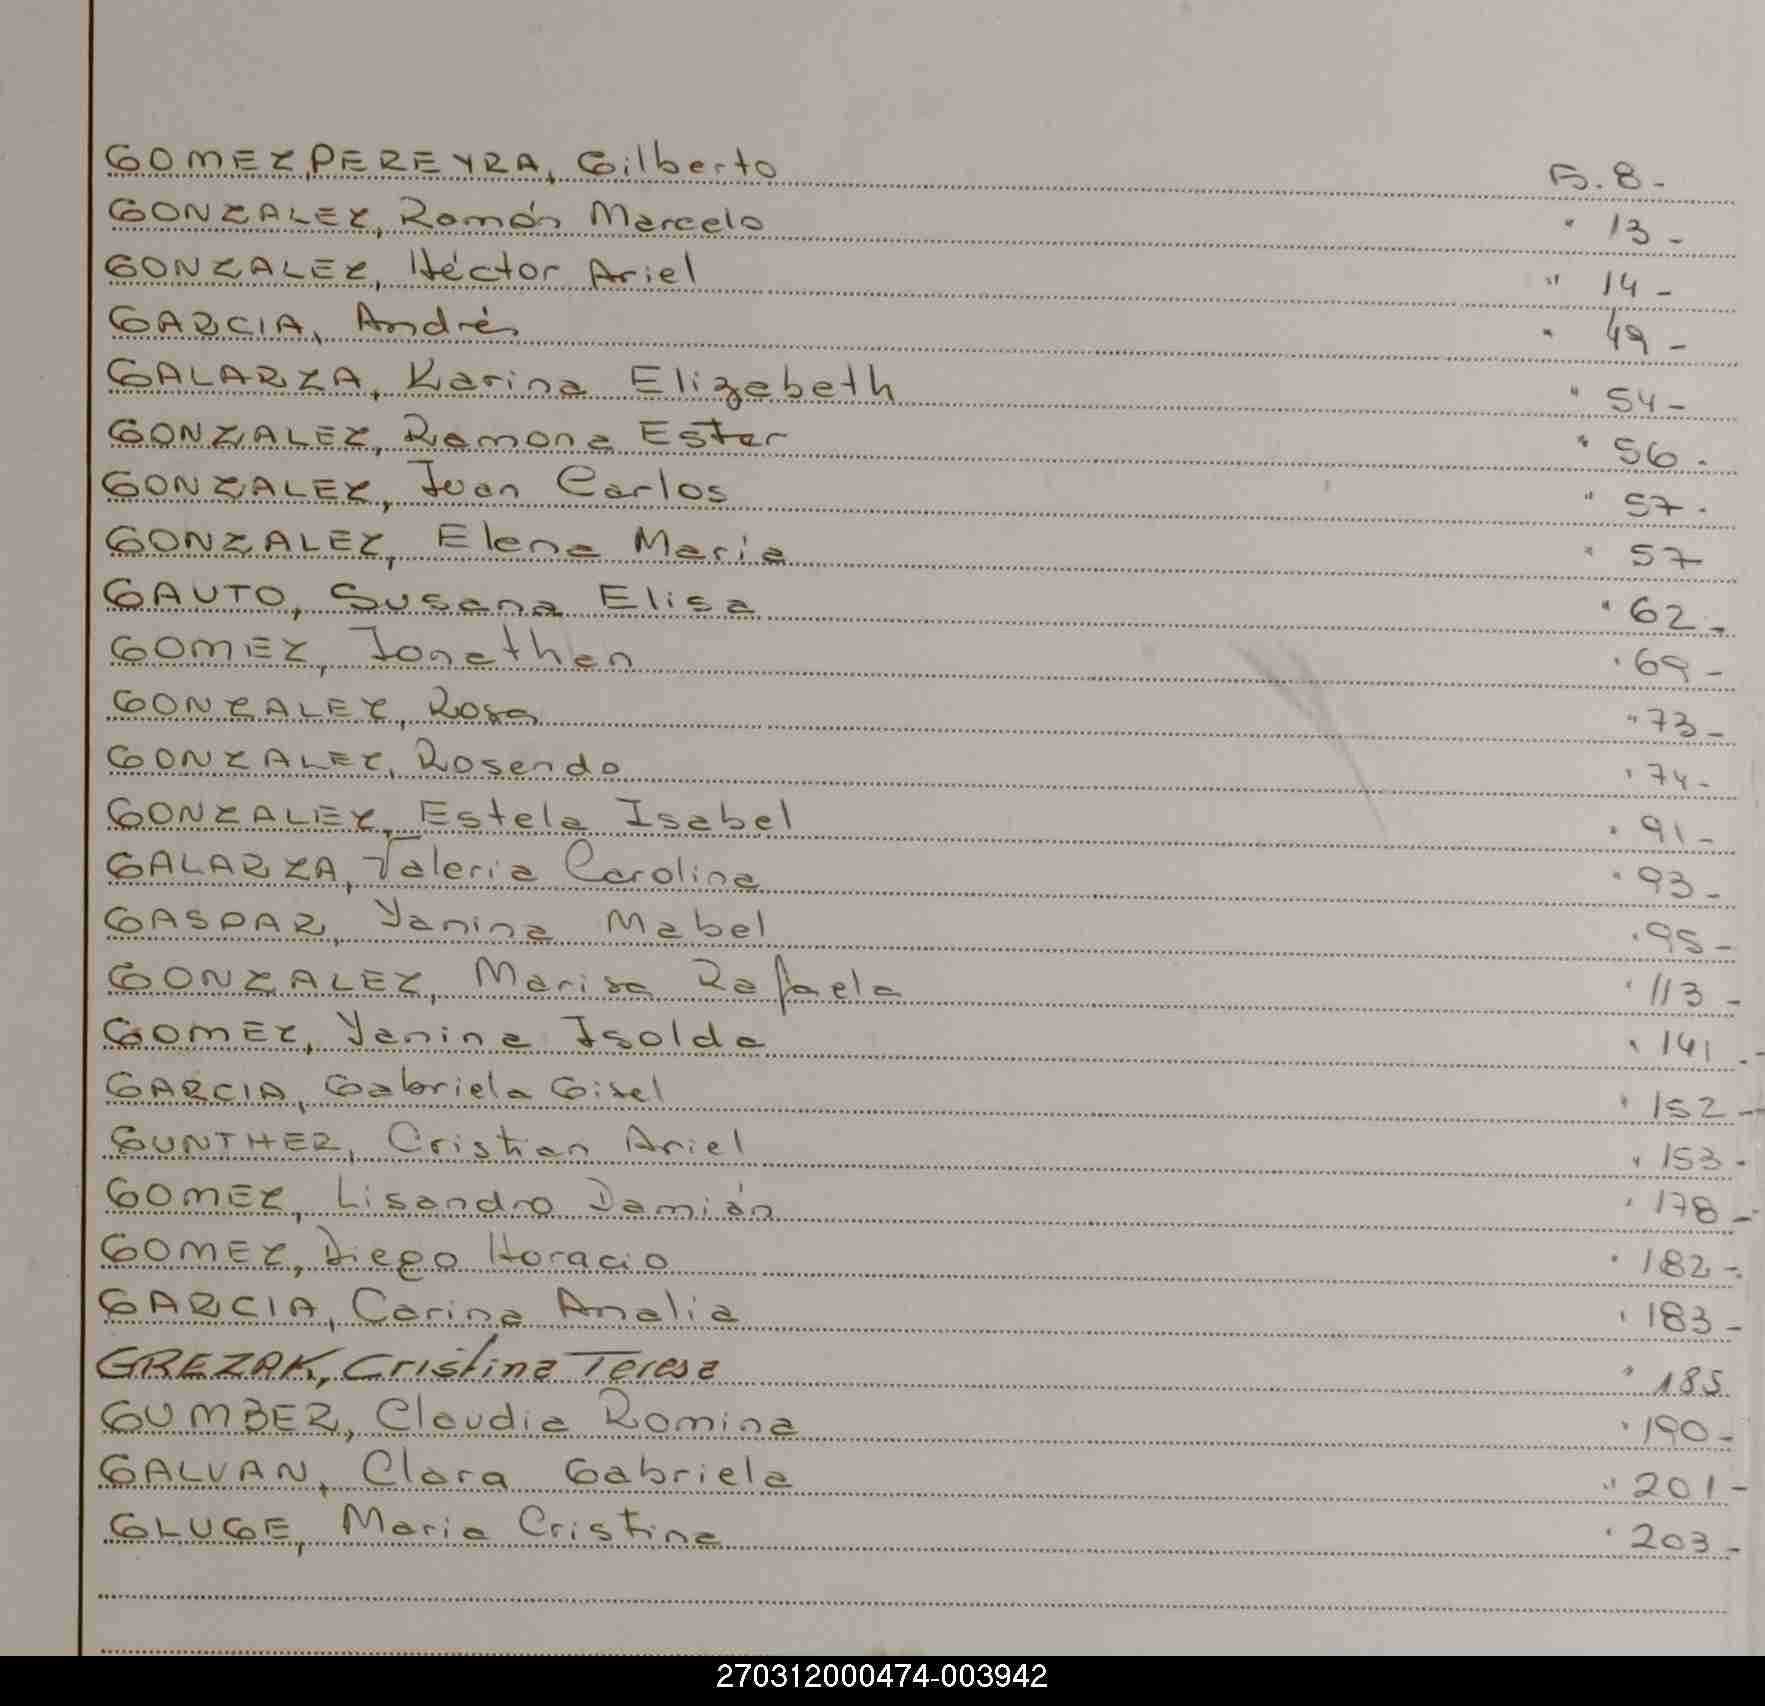 GOMEZ PEREYRA, Gilberto Fs. 8-
GONZALEZ, Ramón Marcelo " 13-
GONZALEZ, Héctor Ariel " 14-
GARCIA, Andrés " 49-
GALARZA, Karina Elizabeth " 54-
GONZALEZ, Ramona Ester " 56-
GONZALEZ, Juan Carlos " 57-
GONZALEZ, Elena Maria " 57
GAUTO, Susana Elisa " 62-
GOMEZ, Jonathan " 69-
GONZALEZ, Rosa " 73-
GONZALEZ, Rosendo " 74-
GONZALEZ, Estela Isabel " 91-
GALARZA, Valeria Carolina " 93-
GASPAR, Yanina Mabel " 95-
GONZALEZ, Marisa Rafaela " 113-
GOMEZ, Yanina Isolda " 141-
GARCIA, Gabriela Gisel " 152-
GUNTHER, Cristian Ariel " 153-
GOMEZ, Lisandro Damián " 178-
GOMEZ, Diego Horacio " 182-
GARCIA, Carina Analia " 183-
GREZAK, Cristina Teresa " 185
GUMBER, Claudia Romina " 190-
GALVAN, Clara Gabriela " 201-
GLUGE, Maria Cristina " 203-
270312000474-003942